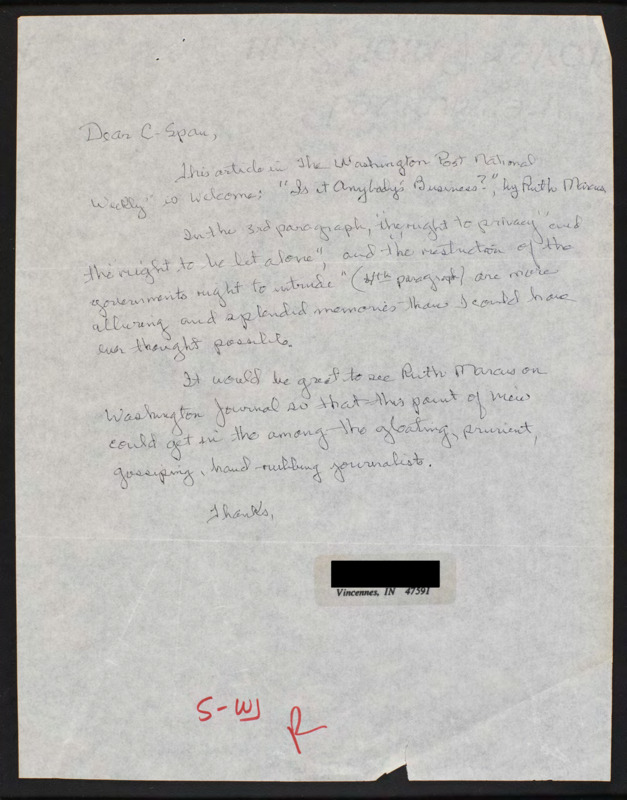 Dear C-Span,
This article in The Washington Post National
Weekly" is welcome: "Is it Anybody's Business?", by Ruth Marcus
In the 3rd paragraph, "the right to privacy" and
the "right to be let alone", and "the restriction of the
governments right to intrude" ( paragraph) are more
alluring and splendid memories than I could have
ever thought possible.
It would be great to see Ruth Marcus on
Washington Journal so that this point of view
could get in the among the gloating, prurient,
gossiping, hand-rubbing journalist.
Thanks,
Vincennes, IN 47591
S-WJ
R